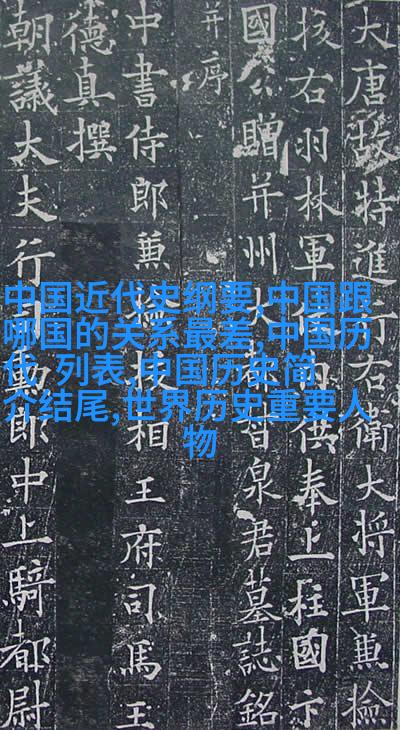 大唐故特進行右衛大將軍兼撿
挍右羽林軍仗內供奉上柱國卞
國公贈并州大都督泉君墓誌銘
并序
中書侍郎兼撿挍相王府司馬王
德真撰
朝議大夫行司勳郎中上騎都尉
中国近代史纲要,中国跟
哪国的关系最差,中国历
代 列表,中国历史简
介结尾,世界历史重要人
物